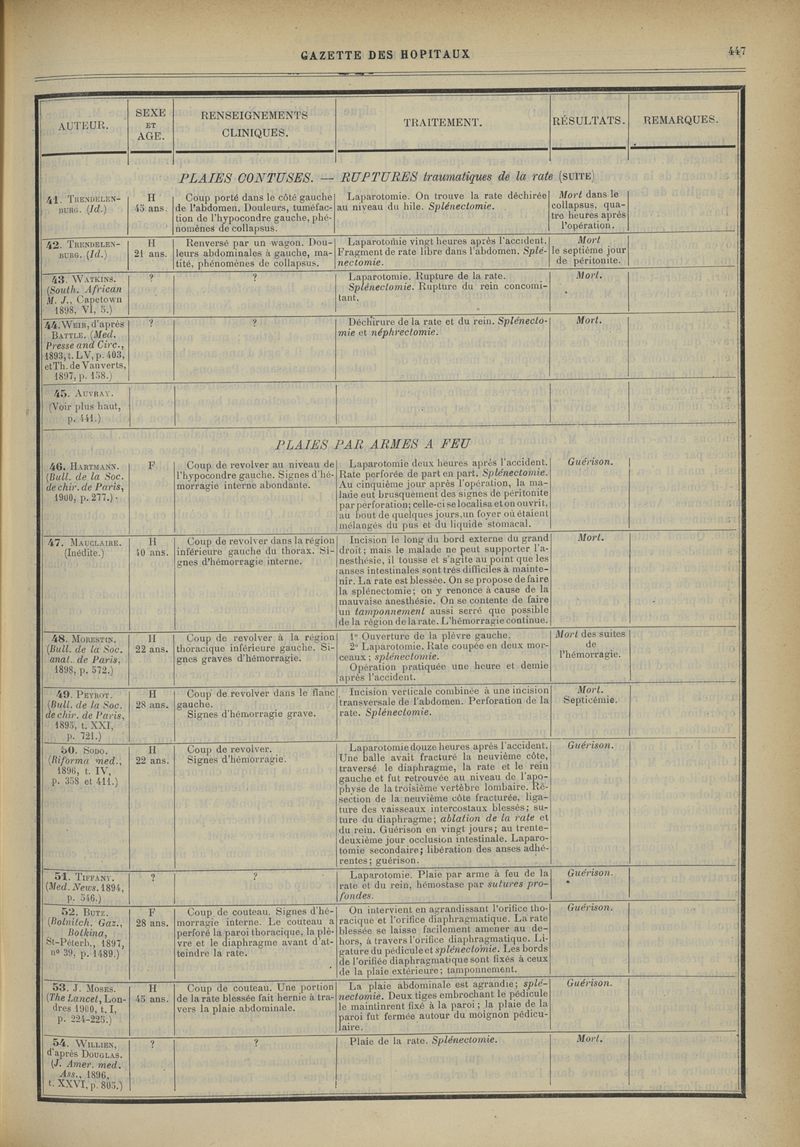 GAZETTE DES HOPITAUX
447
AUTEUR.
SEXE
ET
AGE.
RENSEIGNEMENTS
CLINIQUES.
TRAITEMENT.
RÉSULTATS.
REMARQUES.
PLAIES CONTUSES. — RUPTURES traumatiques de la rate (SUITE)
41. TRENDELEN-
BURG. (Id.)
H
45 ans.
Coup porté dans le côté gauche
de l'abdomen. Douleurs, tuméfac-
tion de l'hypocondre gauche, phé-
nomènes de collapsus.
Laparotomie. On trouve la rate déchirée
au niveau du hile. Splénectomie.
Mort dans le
collapsus, qua-
tre heures après
l'opération.
42. TRENDELEN-
BURG. (Id.)
H
21 ans.
Renversé par un wagon. Dou-
leurs abdominales à gauche, ma-
tité, phénomènes de collapsus.
Laparotomie vingt heures après l'accident.
Fragment de rate libre dans l'abdomen. Splé-
nectomie.
Mort
le septième jour
de péritonite.
43. WATKINS.
(South. African
M. J., Capetown
1898, VI, 5.)
?
?
Laparotomie. Rupture de la rate.
Splénectomie. Rupture du rein concomi-
tant.
Mort.
44. WEIR, d'après
BATTLE. (Med.
Presse and Circ.,
1893, t. LV, p. 403,
et Th. de Vanverts,
1897, p. 158.)
?
?
Déchirure de la rate et du rein. Splénecto-
mie et néphrectomie.
Mort.
45. AUVRAY.
(Voir plus haut,
p. 441.)
PLAIES PAR ARMES A FEU
46. HARTMANN.
(Bull. de la Soc.
de chir. de Paris,
1900, p. 277.)
F
Coup de revolver au niveau de
l'hypocondre gauche. Signes d'hé-
morragie interne abondante.
Laparotomie deux heures après l'accident.
Rate perforée de part en part. Splénectomie.
Au cinquième jour après l'opération, la ma-
lade eut brusquement des signes de péritonite
par perforation; celle-ci se localisa et on ouvrit,
au bout de quelques jours, un foyer où étaient
mélangés du pus et du liquide stomacal.
Guérison.
47. MAUCLAIRE.
(Inédite.)
H
40 ans.
Coup de revolver dans la région
inférieure gauche du thorax. Si-
gnes d'hémorragie interne.
Incision le long du bord externe du grand
droit; mais le malade ne peut supporter l'a-
nesthésie, il tousse et s'agite au point que les
anses intestinales sont très difficiles à mainte-
nir. La rate est blessée. On se propose de faire
la splénectomie; on y renonce à cause de la
mauvaise anesthésie. On se contente de faire
un tamponnement aussi serré que possible
de la région de la rate. L'hémorragie continue.
Mort.
48. MORESTIN.
(Bull. de la Soc.
anat. de Paris,
1898, p. 572.)
H
22 ans.
Coup de revolver à la région
thoracique inférieure gauche. Si-
gnes graves d'hémorragie.
1° Ouverture de la plèvre gauche.
2° Laparotomie. Rate coupée en deux mor-
ceaux; splénectomie.
Opération pratiquée une heure et demie
après l'accident.
Mort des suites
de
l'hémorragie.
49. PEYROT.
(Bull. de la Soc.
de chir. de Paris,
1895, t. XXI,
p. 721.)
H
28 ans.
Coup de revolver dans le flanc
gauche.
Signes d'hémorragie grave.
Incision verticale combinée à une incision
transversale de l'abdomen. Perforation de la
rate. Splénectomie.
Mort.
Septicémie.
50. SODO.
(Riforma med.,
1896, t. IV,
p. 358 et 411.)
H
22 ans.
Coup de revolver.
Signes d'hémorragie.
Laparotomie douze heures après l'accident.
Une balle avait fracturé la neuvième côte,
traversé le diaphragme, la rate et le rein
gauche et fut retrouvée au niveau de l'apo-
physe de la troisième vertèbre lombaire. Ré-
section de la neuvième côte fracturée, liga-
ture des vaisseaux intercostaux blessés; su-
ture du diaphragme; ablation de la rate et
du rein. Guérison en vingt jours; au trente-
deuxième jour occlusion intestinale. Laparo-
tomie secondaire; libération des anses adhé-
rentes; guérison.
Guérison.
51. TIFFANY.
(Med. News. 1894,
p. 546.)
?
?
Laparotomie. Plaie par arme à feu de la
rate et du rein, hémostase par sutures pro-
fondes.
Guérison.
52. BUTZ.
(Bolnitch. Gaz.,
Botkina,
St-Péterb., 1897,
n° 39, p. 1489.)
F
28 ans.
Coup de couteau. Signes d'hé-
morragie interne. Le couteau a
perforé la paroi thoracique, la plè-
vre et le diaphragme avant d'at-
teindre la rate.
On intervient en agrandissant l'orifice tho-
racique et l'orifice diaphragmatique. La rate
blessée se laisse facilement amener au de-
hors, à travers l'orifice diaphragmatique. Li-
gature du pédicule et splénectomie. Les bords
de l'orifice diaphragmatique sont fixés à ceux
de la plaie extérieure; tamponnement.
Guérison.
53. J. MOSES.
(The Lancet, Lon-
dres 1900, t. I,
p. 224-225.)
H
45 ans.
Coup de couteau. Une portion
de la rate blessée fait hernie à tra-
vers la plaie abdominale.
La plaie abdominale est agrandie; splé-
nectomie. Deux tiges embrochant le pédicule
le maintinrent fixé à la paroi; la plaie de la
paroi fut fermée autour du moignon pédicu-
laire.
Guérison.
54. WILLIEN,
d'après DOUGLAS.
(J. Amer. med.
Ass., 1896,
t. XXVI, p. 805.)
?
?
Plaie de la rate. Splénectomie.
Mort.